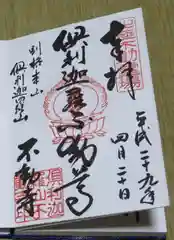 奉拝
平成二十九年
四月二十日
倶利迦羅不動尊
別格本山
倶利迦羅山
不動寺